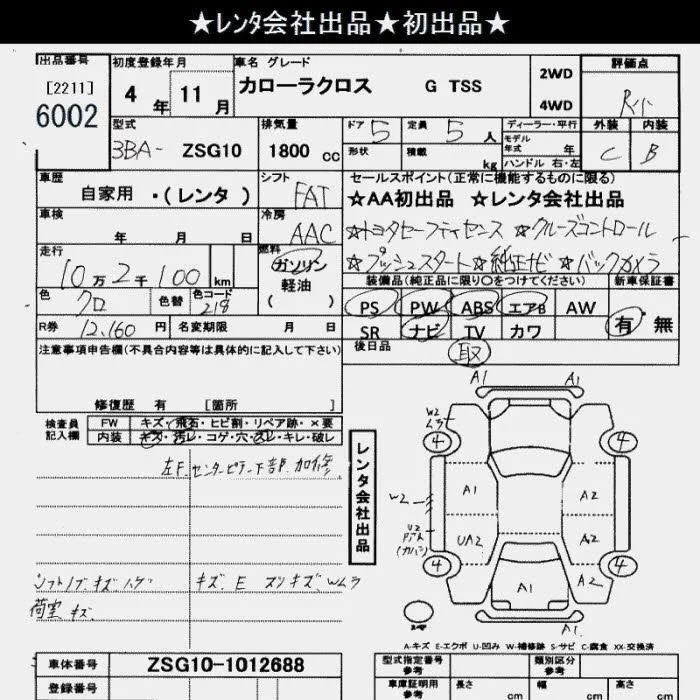 ★レンタ会社出品★初出品★
出品番号 初度登録年月 車名 グレード 2WD 評価点
[2211] 4 年 11 月 カローラクロス G TSS 4WD
6002
型式 排気量 ドア 5 定員 5 人 ディーラー・平行 外装 内装
3BA- ZSG10 1800 cc 形状 積載 kg モデル年式 年 C B
ハンドル 右・左
車歴 シフト セールスポイント(正常に機能するものに限る)
自家用 ・(レンタ) FAT ★AA初出品 ★レンタ会社出品
車検 年 月 日 冷房 AAC ☆トヨタセーフティセンス ☆クルーズコントロール
走行 燃料 ガソリン ☆プッシュスタート ☆純正ナビ ☆バックカメラ
10万2千100 km 軽油 ( ) 装備品(純正品に限り○をつけてください) 新車保証書
色 クロ 色替 色コード 218 PS PW ABS エアB AW 有・無
R券 12,160 円 名変期限 月 日 SR ナビ TV カワ
注意事項申告欄(不具合内容等は具体的に記入して下さい) 後日品 取
修復歴 有 [箇所 ]
検査員記入欄 FW キズ・飛石・ヒビ割・リペア跡・×要
内装 キズ・汚レ・コゲ・穴・スレ・キレ・破レ
左F.センターピラー下部.加修
シフトノブ キズ ハゲ
荷室 キズ
レンタ会社出品
A1 A1
W2
4 4
A1 A2
W2
UA2 A2
4 4
A1 A2
A1
A-キズ E-エクボ U-凹み W-補修跡 S-サビ C-腐食 XX-交換済
車体番号 ZSG10-1012688
登録番号
型式指定番号 参考 類別区分 参考
車庫証明用 参考 長さ cm 幅 cm 高さ cm